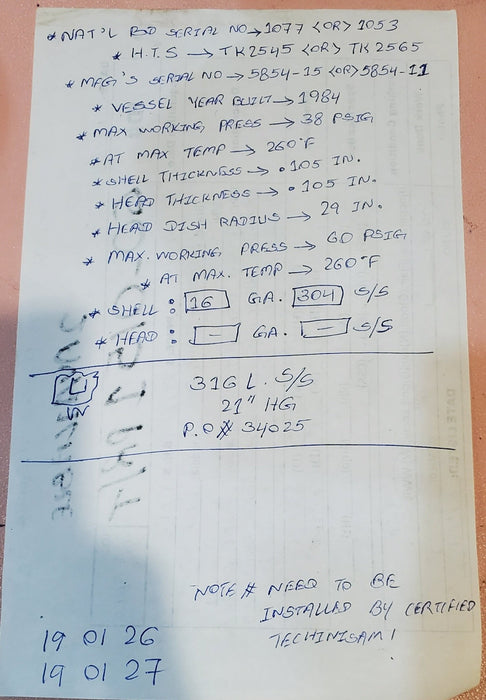 * NAT'L BD SERIAL NO → 1077 <OR> 1053
* H.T.S → TK2545 <OR> TK 2565
* MFG'S SERIAL NO → 5854-15 <OR> 5854-11
* VESSEL YEAR BUILT → 1984
* MAX WORKING PRESS → 38 PSIG
* AT MAX TEMP → 260°F
* SHELL THICKNESS → .105 IN.
* HEAD THICKNESS → .105 IN.
* HEAD DISH RADIUS → 29 IN.
* MAX. WORKING PRESS → 60 PSIG
* AT MAX. TEMP → 260°F
* SHELL : 16 GA. 304 S/S
* HEAD : - GA. - S/S
316 L. S/S
21" HG
P.O# 34025
NOTE # NEED TO BE
INSTALLED BY CERTIFIED
TECHINISAM !
19 01 26
19 01 27